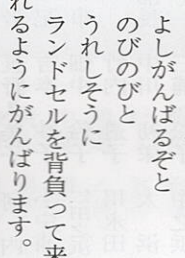 よしがんばるぞと
のびのびと
うれしそうに
ランドセルを背負って来
れるようにがんばります。